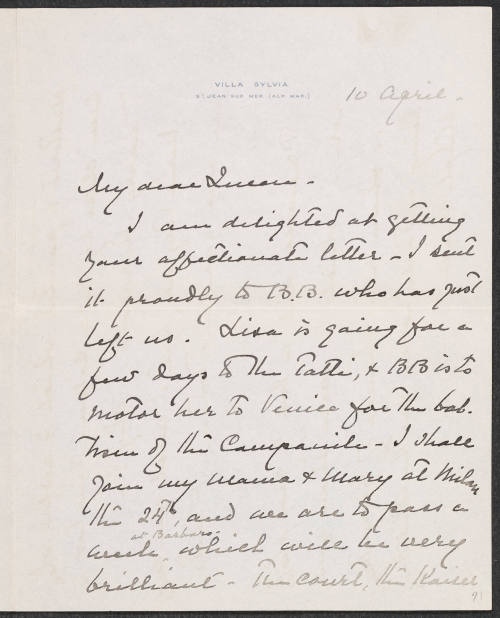 VILLA SYLVIA
ST JEAN SUR MER (ALP. MAR.)
10 April -
My dear Queen -
I am delighted at getting
your affectionate letter - I sent
it proudly to B.B. who has just
left us. Lisa is going for a
few days to the Tatti, & BB is to
motor her to Venice for the bab-
tism of the Campanile - I shall
join my mama & Mary at Milan
the 24th, and we are to pass a
at Barbaro
week, which will be very
brilliant - The court, the Kaiser